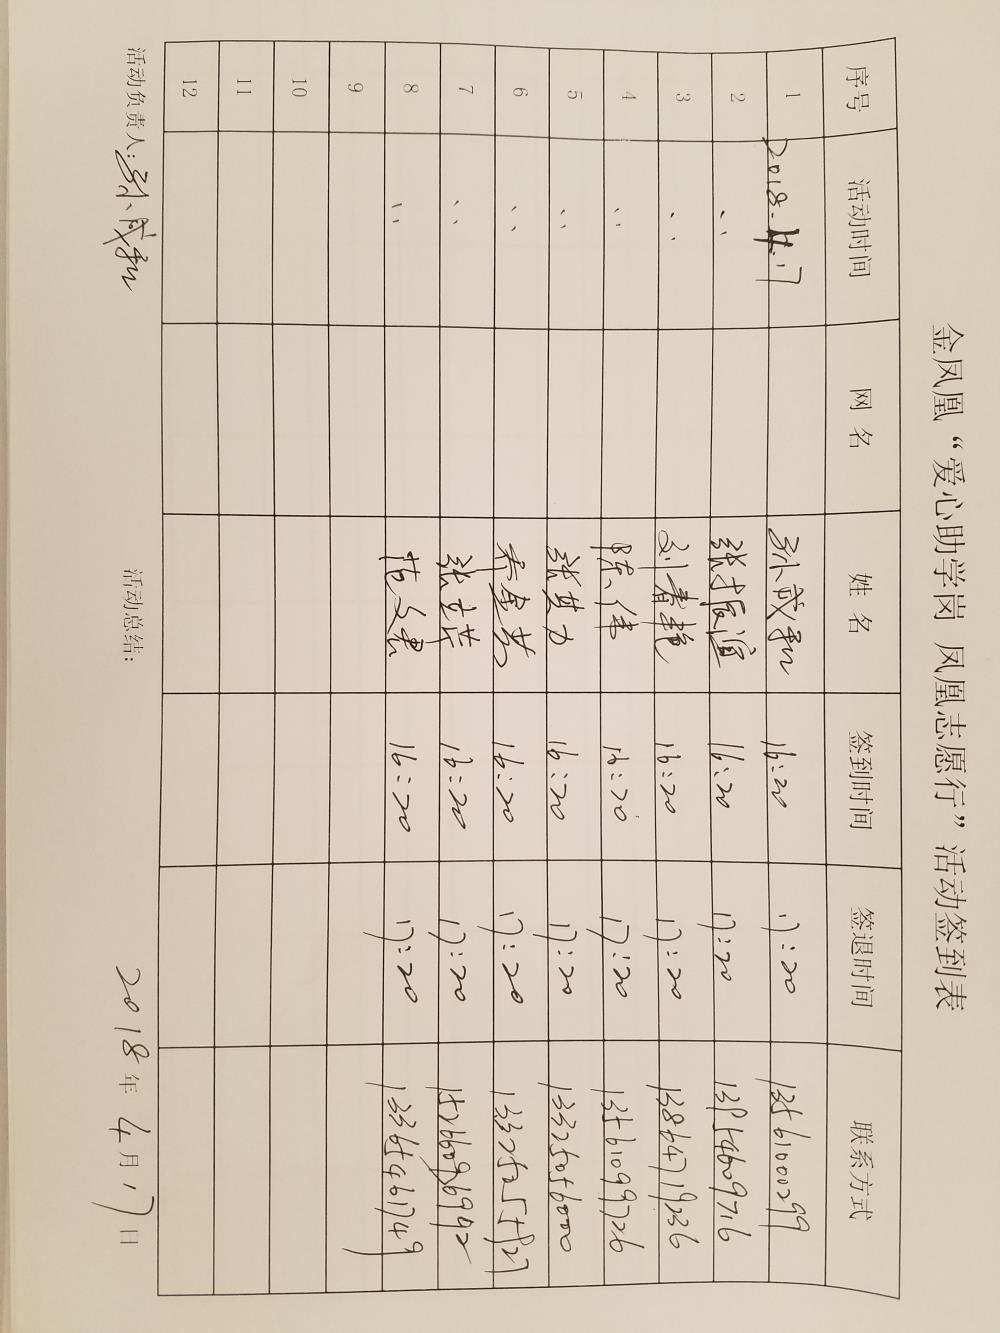 金凤凰“爱心助学岗 凤凰志愿行”活动签到表
序号 活动时间 网名 姓名 签到时间 签退时间 联系方式
1 2018.4.17 孙成和 16:20 17:20 13561000299
2 〃 张振谊 16:20 17:20 13954609716
3 〃 刘春艳 16:20 17:20 13864719236
4 〃 陈伟 16:20 17:20 13561099726
5 〃 张其力 16:20 17:20 13325056000
6 〃 16:20 17:20
7 〃 张立芸 16:20 17:20 15266096992
8 〃 16:20 17:20 13365461749
9
10
11
12
活动负责人:孙成和 活动总结: 2018年4月17日